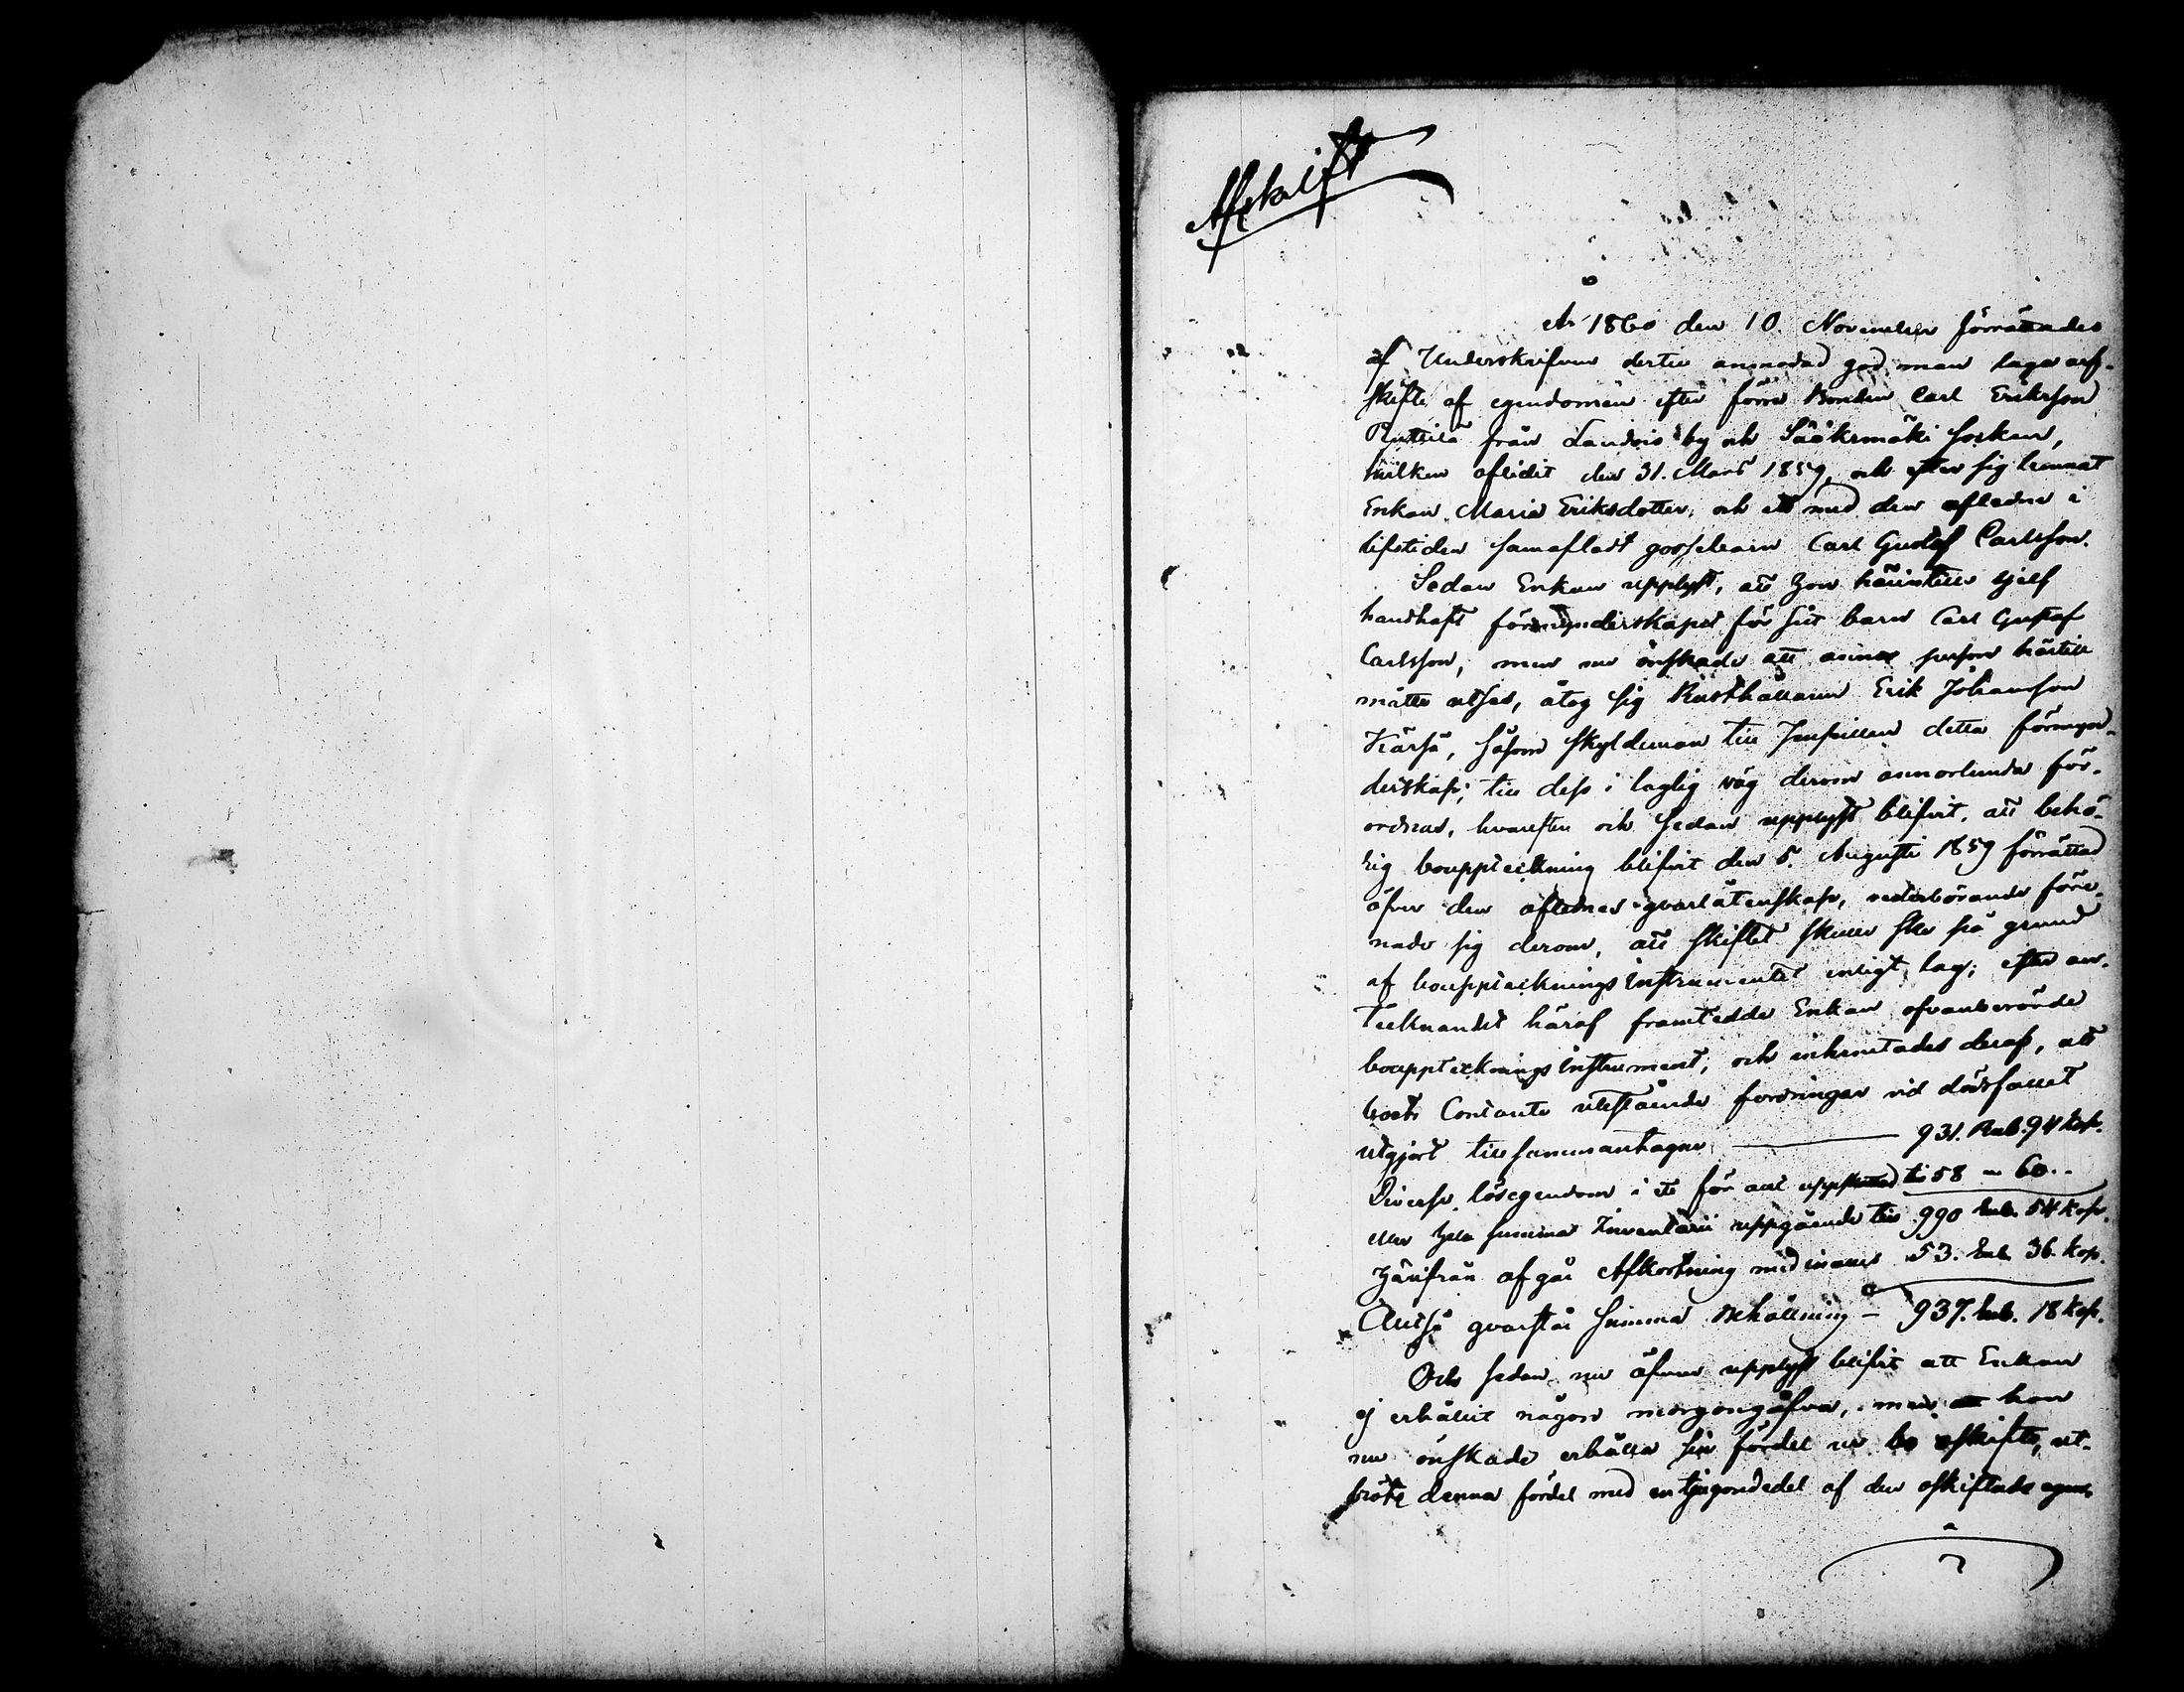 Afskrift
År 1860 den 10. November förrättades
af Underskrifven dertill anmodad god man laga arf-
skifte af egendomen efter förre Bonden Carl Erikson
Ruttila från Landois by och Sääksmäki socken,
hvilken aflidit den 31. Mars 1859, och efter sig lemnat
Enkan Maria Eriksdotter, och ett med den aflidne i
lifstiden samafladt gossebarn Carl Gustaf Carlsson.
Sedan Enkan upplyst, att hon härintills sjelf
handhaft förmynderskapet för sitt barn Carl Gustaf
Carlsson, men nu önskade att annor person härtill
måtte utses, åtog sig Rusthållaren Erik Johansson
Kärsä, såsom skyldeman till pupillen detta förmyn-
derskap, till dess i laglig väg derom annorlunda för-
ordnas, hvarefter och sedan upplyst blifvit, att behö-
rig bouppteckning blifvit den 5. Augusti 1859 förrättad
öfver den aflidnes qvarlåtenskap, vederbörande före-
nade sig derom, att skiftet skulle ske på grund
af bouppteckningsinstrumentet enligt lag; efter an-
tecknandet häraf framtedde Enkan ofvanberörde
bouppteckningsinstrument, och inhemtades deraf, att
boets Contante utestående fordringar vid dödsfallet
utgjort tillsammantagne — 931. Rub. 94 kop.
Diverse lösegendom i ett för allt uppskattad till 58 " 60 "
eller hela summa Inventarii uppgående till 990 Rub. 54 kop.
Härifrån afgår Afkortning med inalles 53. Rub. 36. kop.
Alltså qvarstår summa Behållning — 937. Rub. 18 kop.
Och sedan nu äfven upplyst blifvit att Enkan
ej erhållit någon morgongåfva, men hon
nu önskade erhålla sin fördel ur bo oskifto, ut-
bröts denna fördel med en tjugondedel af den oskiftade egen-